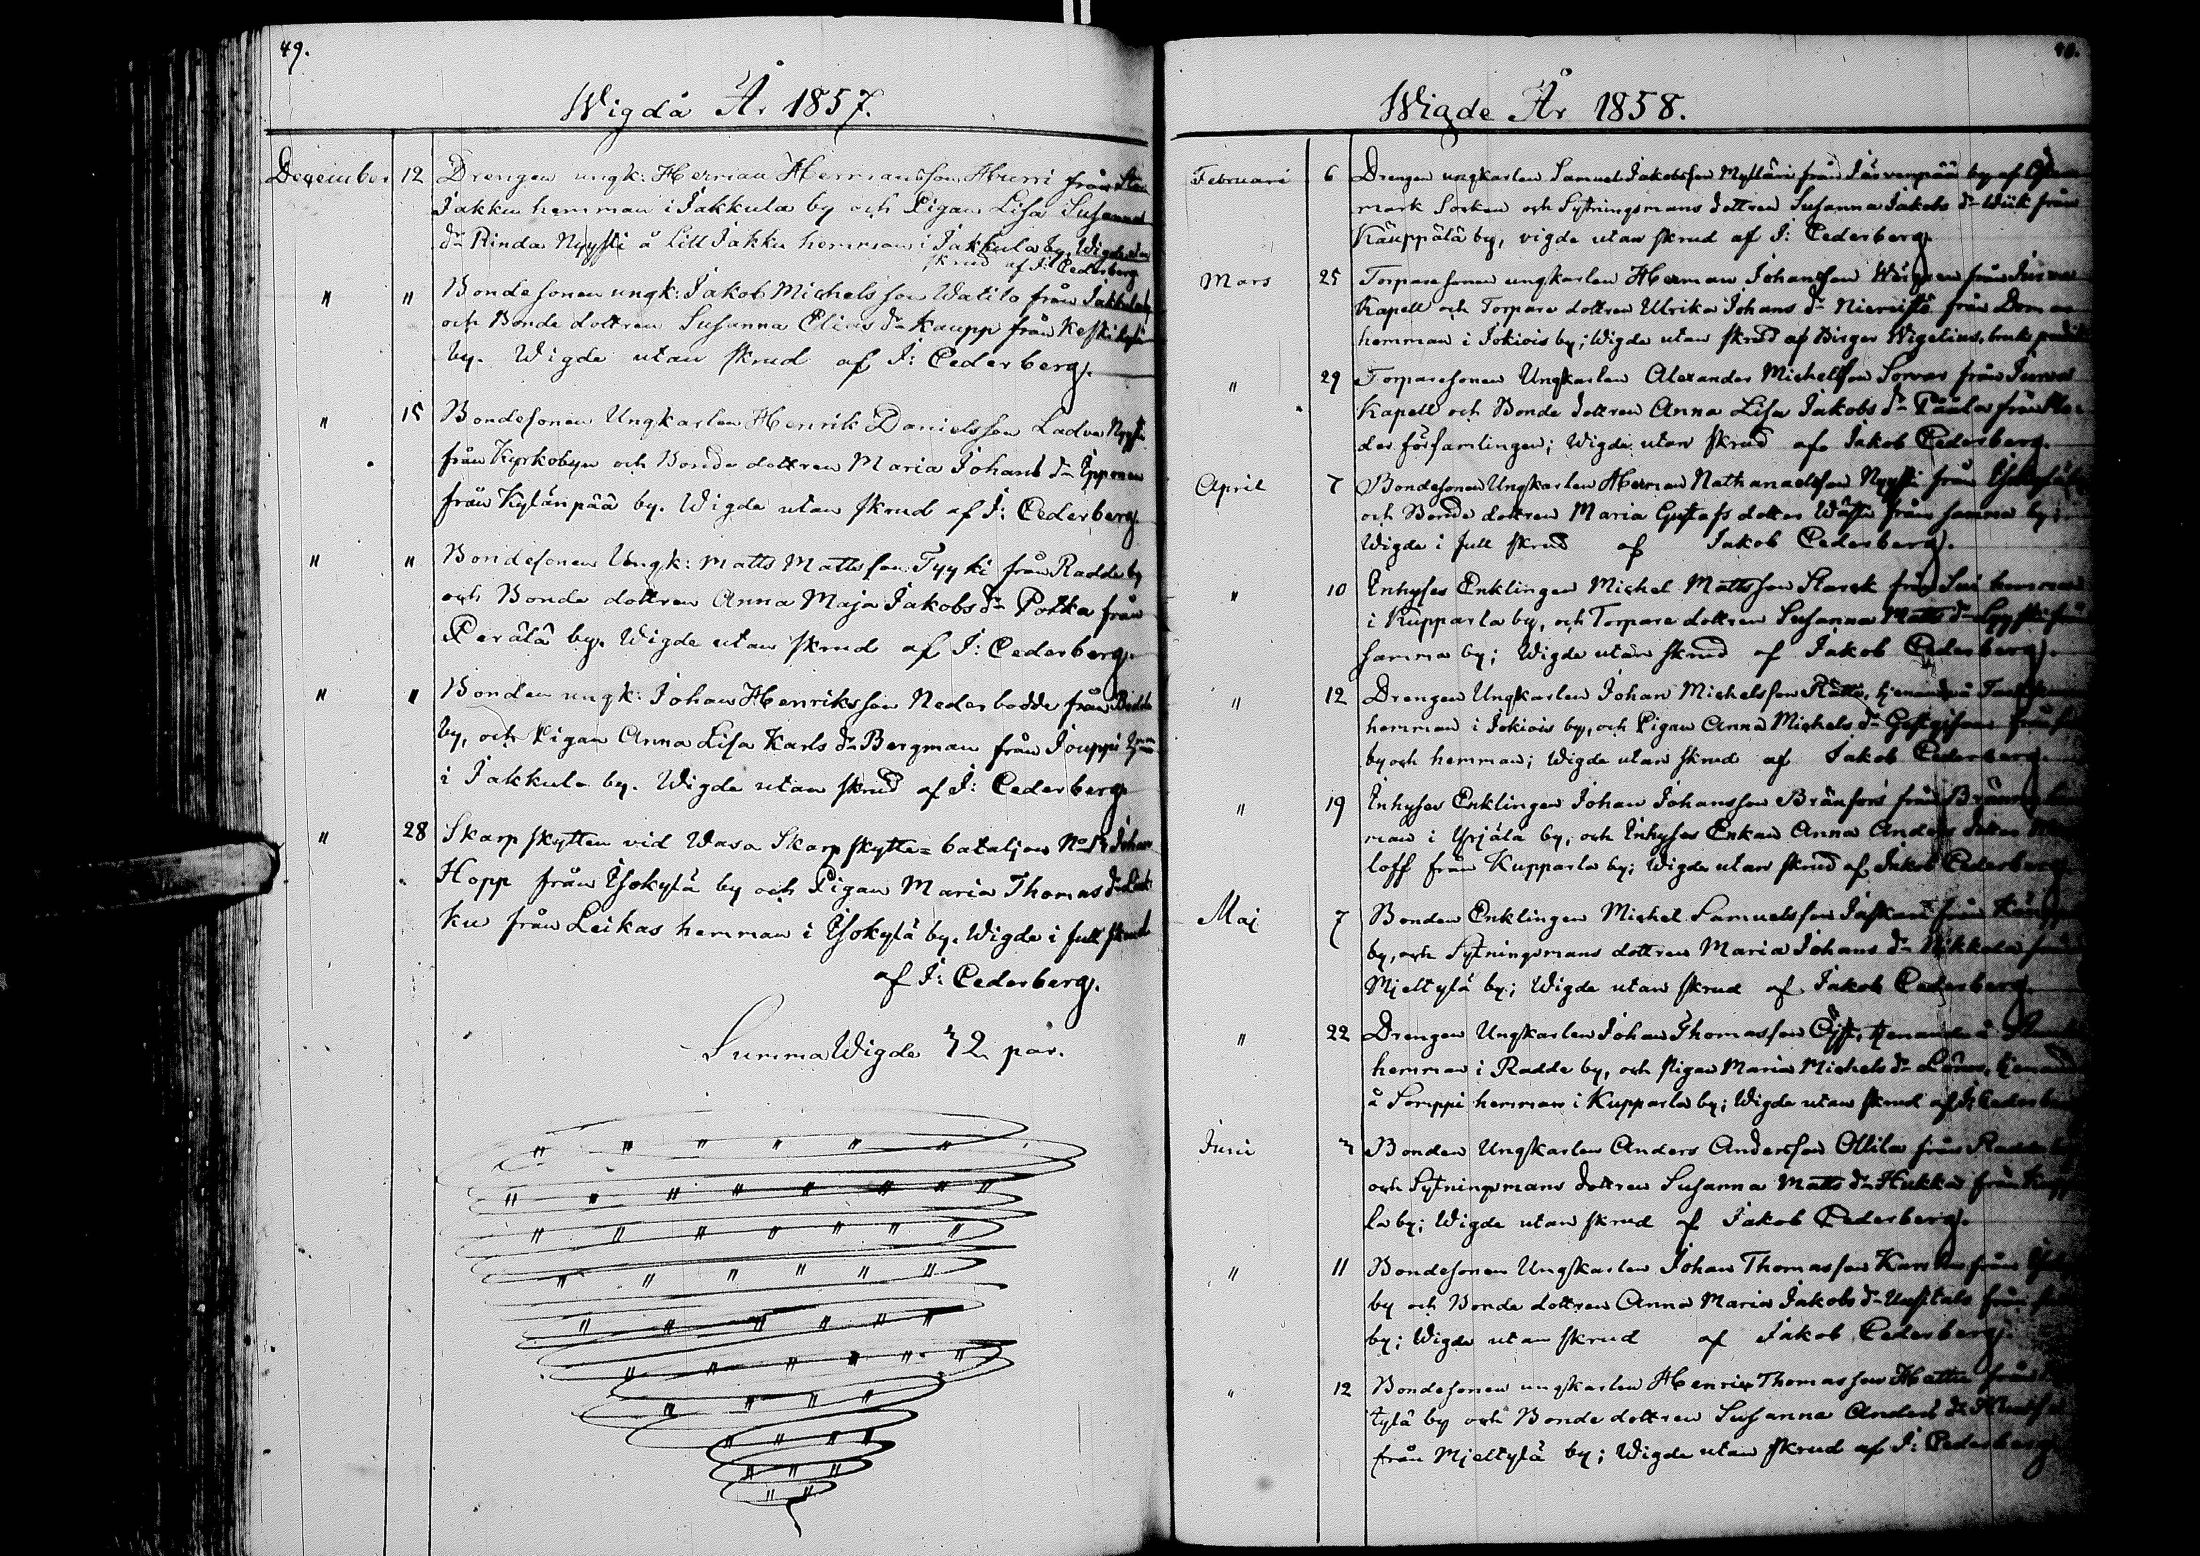 49.
Wigda År 1857.
December 12 Drengen ungk: Herman Hermansson Hurri från
Jakku hemman i Jakkula by och Pigan Lisa Susanna
dr Rinda Nyysti å Lill Jakku hemman i Jakkula by, Wigde utan
skrud af J: Cederberg
" " Bondesonen ungk: Jakob Michelsson Watilo från Jakkula by
och Bonde dottren Susanna Elias dr Kaupp från Keskikylä
by. Wigde utan skrud af J: Cederberg.
" 15 Bondesonen Ungkarlen Henrik Danielsson Ladva
från Kyrkobyn och Bonde dottren Maria Johans dr
från Kylänpää by. Wigde utan skrud af J: Cederberg.
" " Bondesonen Ungk: Matts Mattsson Tyyki från Radde by
och Bonde dottren Anna Maja Jakobs dr Potka från
Perälä by. Wigde utan skrud af J: Cederberg.
" " Bonden ungk: Johan Henriksson Nederbodde från
by, och Pigan Anna Lisa Karls dr Bergman från Jouppi
i Jakkula by. Wigde utan skrud af J: Cederberg
" 28 Skarpskytten vid Wasa Skarpskytte=bataljon No Johan
Hopp från Ÿsokylä by och Pigan Maria Thomas dr
ku från Leikas hemman i Ÿsokylä by. Wigde i full skrud
af J: Cederberg.
Summa Wigde 32 par.
Wigde År 1858.
Februari 6 Drengen ungkarlen Samuel Jakobsson Myllari från Järvenpää by af
mark Socken och Sytningsmans dottren Susanna Jakobs dr Wiik från
Käuppälä by, vigde utan skrud af J: Cederberg.
Mars 25 Torparesonen ungkarlen Herman Johansson från
Kapell och Torpare dottren Ulrika Johans dr Niemistö från
hemman i Jokiois by; Wigde utan skrud af Birger Wegelius,
" 29 Torparesonen Ungkarlen Alexander Michelsson Sorvar från Jurva
Kapell och Bonde dottren Anna Lisa Jakobs dr Päälä från
der församlingen; Wigde utan skrud af Jakob Cederberg.
April 7 Bondesonen Ungkarlen Herman Nathanaelsson Nyysti från
och Bonde dottren Maria Gustafs dotter från samma by;
Wigde i full skrud af Jakob Cederberg.
" 10 Inhyses Enklingen Michel Mattsson Starck från hemman
i Kupparla by, och Torpare dottren Susanna Matts dr från
samma by; Wigde utan skrud af Jakob Cederberg.
" 12 Drengen Ungkarlen Johan Michelsson Rätto, tjenande å
hemman i Jokiois by, och Pigan Anna Michels dr
by och hemman; Wigde utan skrud af Jakob Cederberg.
" 19 Inhyses Enklingen Johan Johansson Bränfors från
man i Yrjälä by, och Inhyses Enkan Anna Anders dotter
loff från Kupparla by; Wigde utan skrud af Jakob Cederberg
Maj 7 Bonden Enklingen Michel Samuelsson från
by, och Sytningsmans dottren Maria Johans dr Nikkola från
Mjeltylä by; Wigde utan skrud af Jakob Cederberg.
" 22 Drengen Ungkarlen Johan Thomasson tjenande å
hemman i Radde by, och Pigan Maria Michels dr tjenande
å Somppi hemman i Kupparla by; Wigde utan skrud af J: Cederberg
Juni 3 Bonden Ungkarlen Anders Andersson Ollila från Radde by
och Sytningsmans dottren Susanna Matts dr Hukka från
la by; Wigde utan skrud af Jakob Cederberg.
" 11 Bondesonen Ungkarlen Johan Thomasson från
by och Bonde dottren Anna Maria Jakobs dr Uusitalo från
by; Wigde utan skrud af Jakob Cederberg.
" 12 Bondesonen ungkarlen Henrik Thomasson från
kylä by och Bonde dottren Susanna Anders dr
från Mjeltylä by; Wigde utan skrud af J: Cederberg